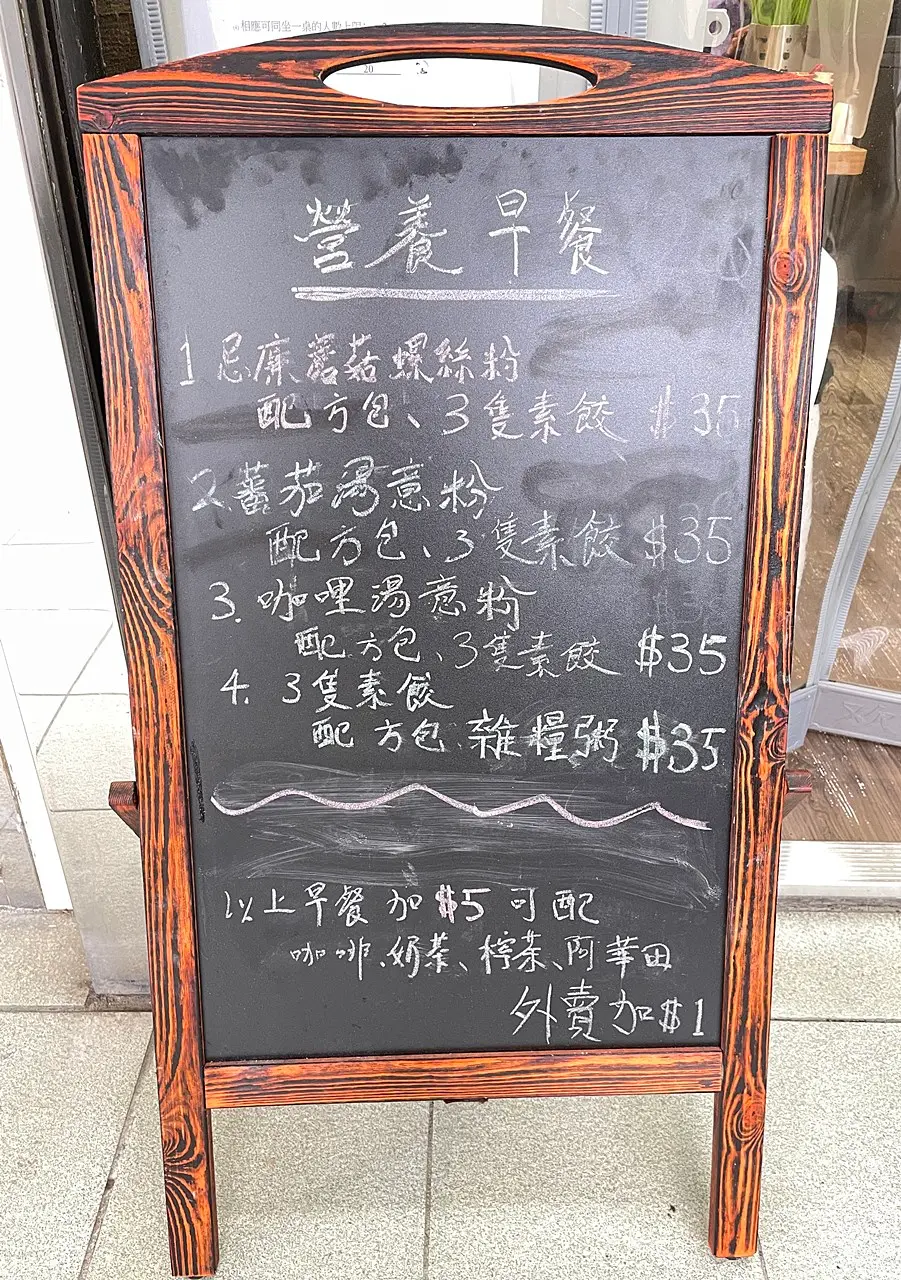 相應可同坐一桌的人數上限
20
營養早餐
1 忌廉蘑菇螺絲粉
配方包、3隻素餃 $35
2.蕃茄湯意粉
配方包、3隻素餃 $35
3. 咖哩湯意粉
配方包、3隻素餃 $35
4. 3隻素餃
配方包、雜糧粥 $35
以上早餐加$5可配
咖啡、奶茶、檸茶、阿華田
外賣加$1